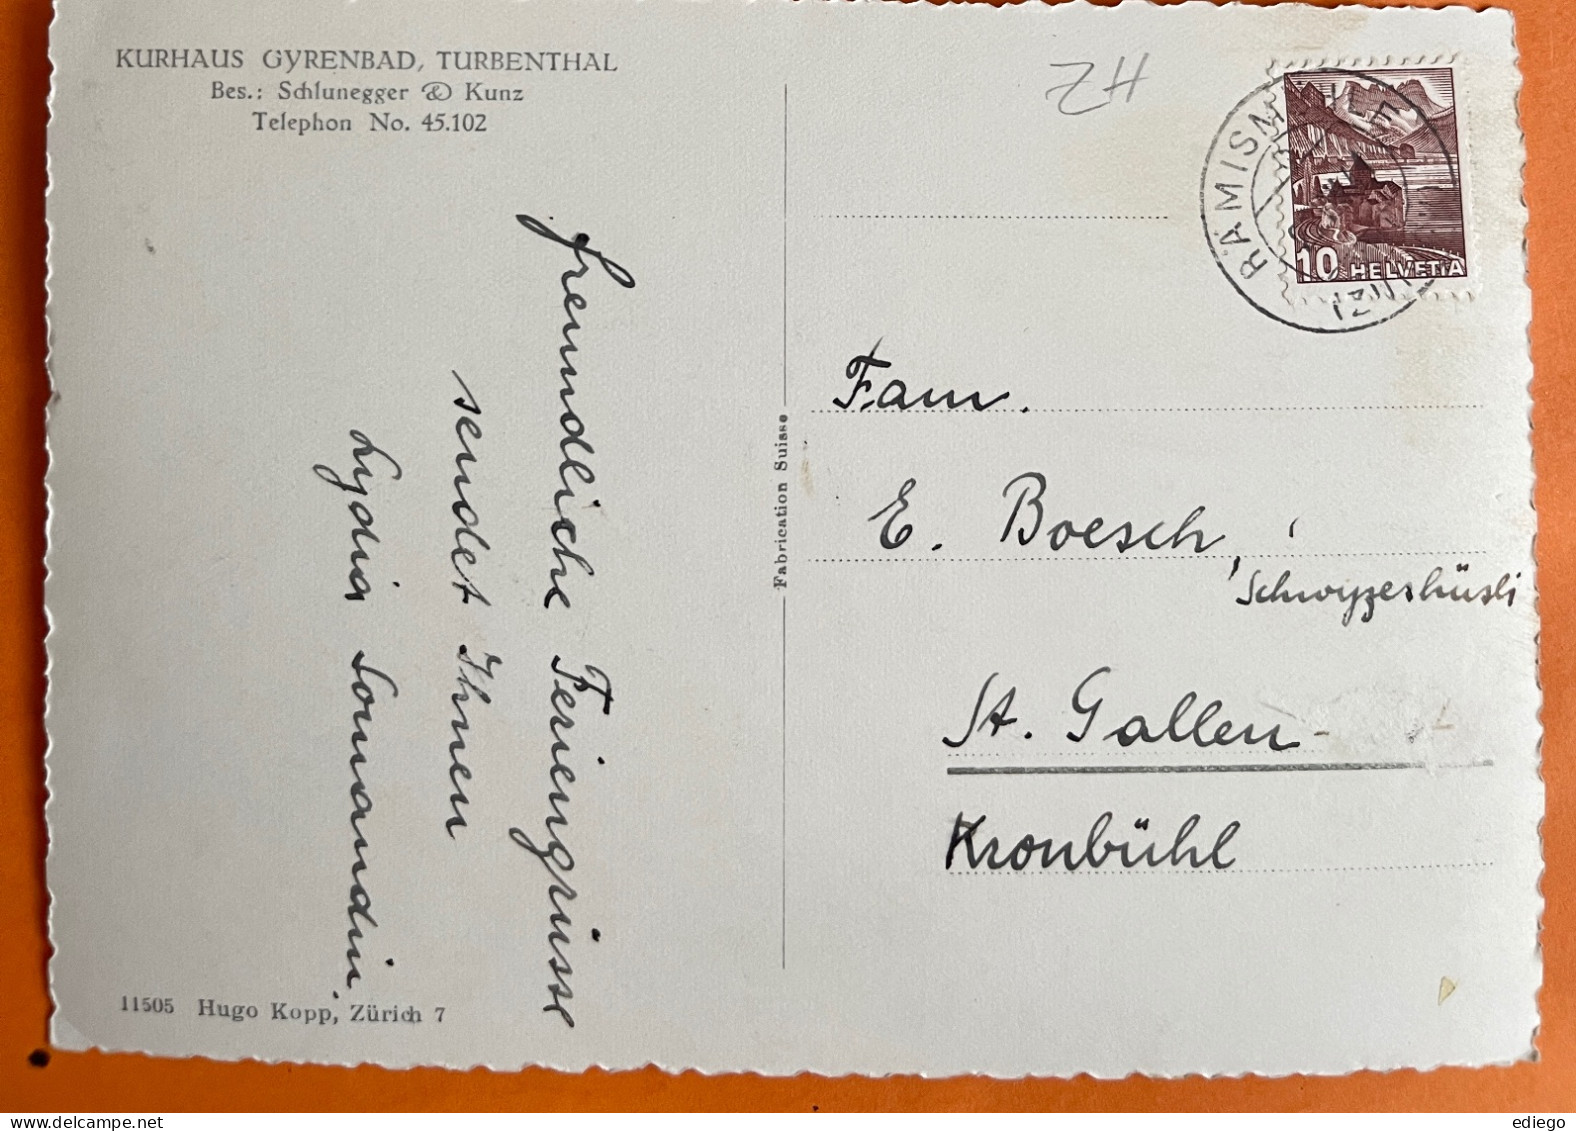 KURHAUS GYRENBAD, TURBENTHAL
Bes.: Schlunegger & Kunz
Telephon No. 45.102
freundliche Feriengrüsse
sendet Ihnen
Lydia Sonnandin
11505 Hugo Kopp, Zürich 7
Fabrication Suisse
ZH
RÄMISMÜHLE
10 HELVETIA
Fam.
E. Boesch,
Schwyzerhüsli
St. Gallen-
Kronbühl
ediego